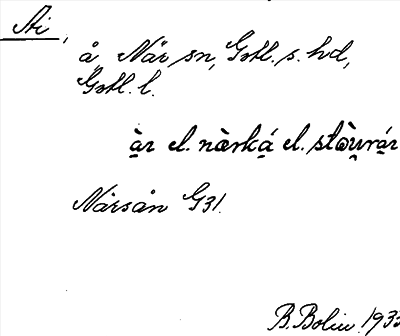 Åi,
å, När sn, Gotl. s. hd,
Gotl. l.
àr el. nàrką́ el.
Närsån G31.
B. Bolin 1933